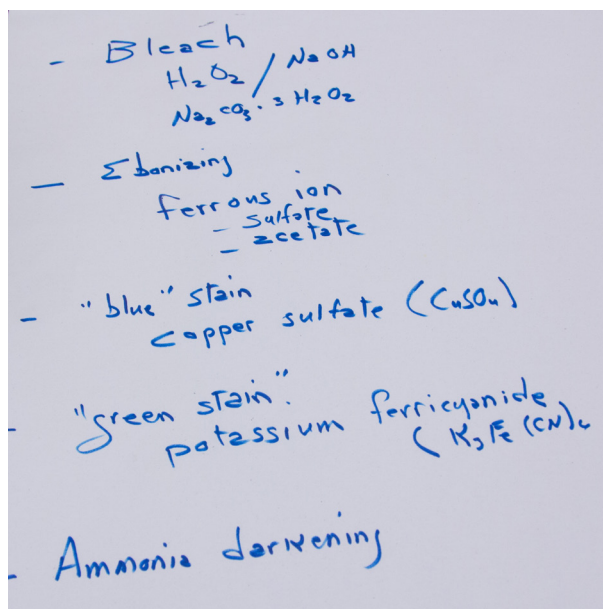 - Bleach
H2O2 / NaOH
Na2CO3 · 3 H2O2
- Ebonizing
ferrous ion
- sulfate
- acetate
- "blue" stain
copper sulfate (CuSO4)
- "green stain".
potassium ferricyanide
(K3Fe(CN)6
- Ammonia darkening